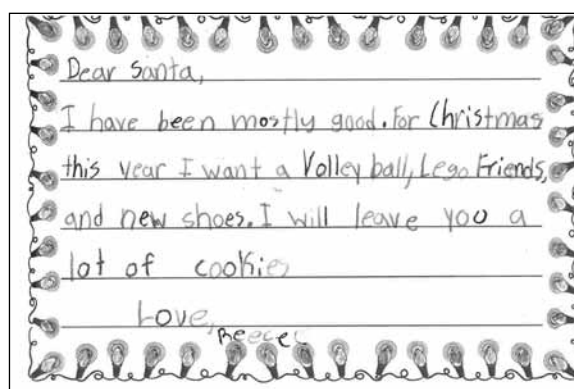 Dear Santa,
I have been mostly good. For Christmas
this year I want a Volley ball, Lego Friends,
and new shoes. I will leave you a
lot of cookies
Love,